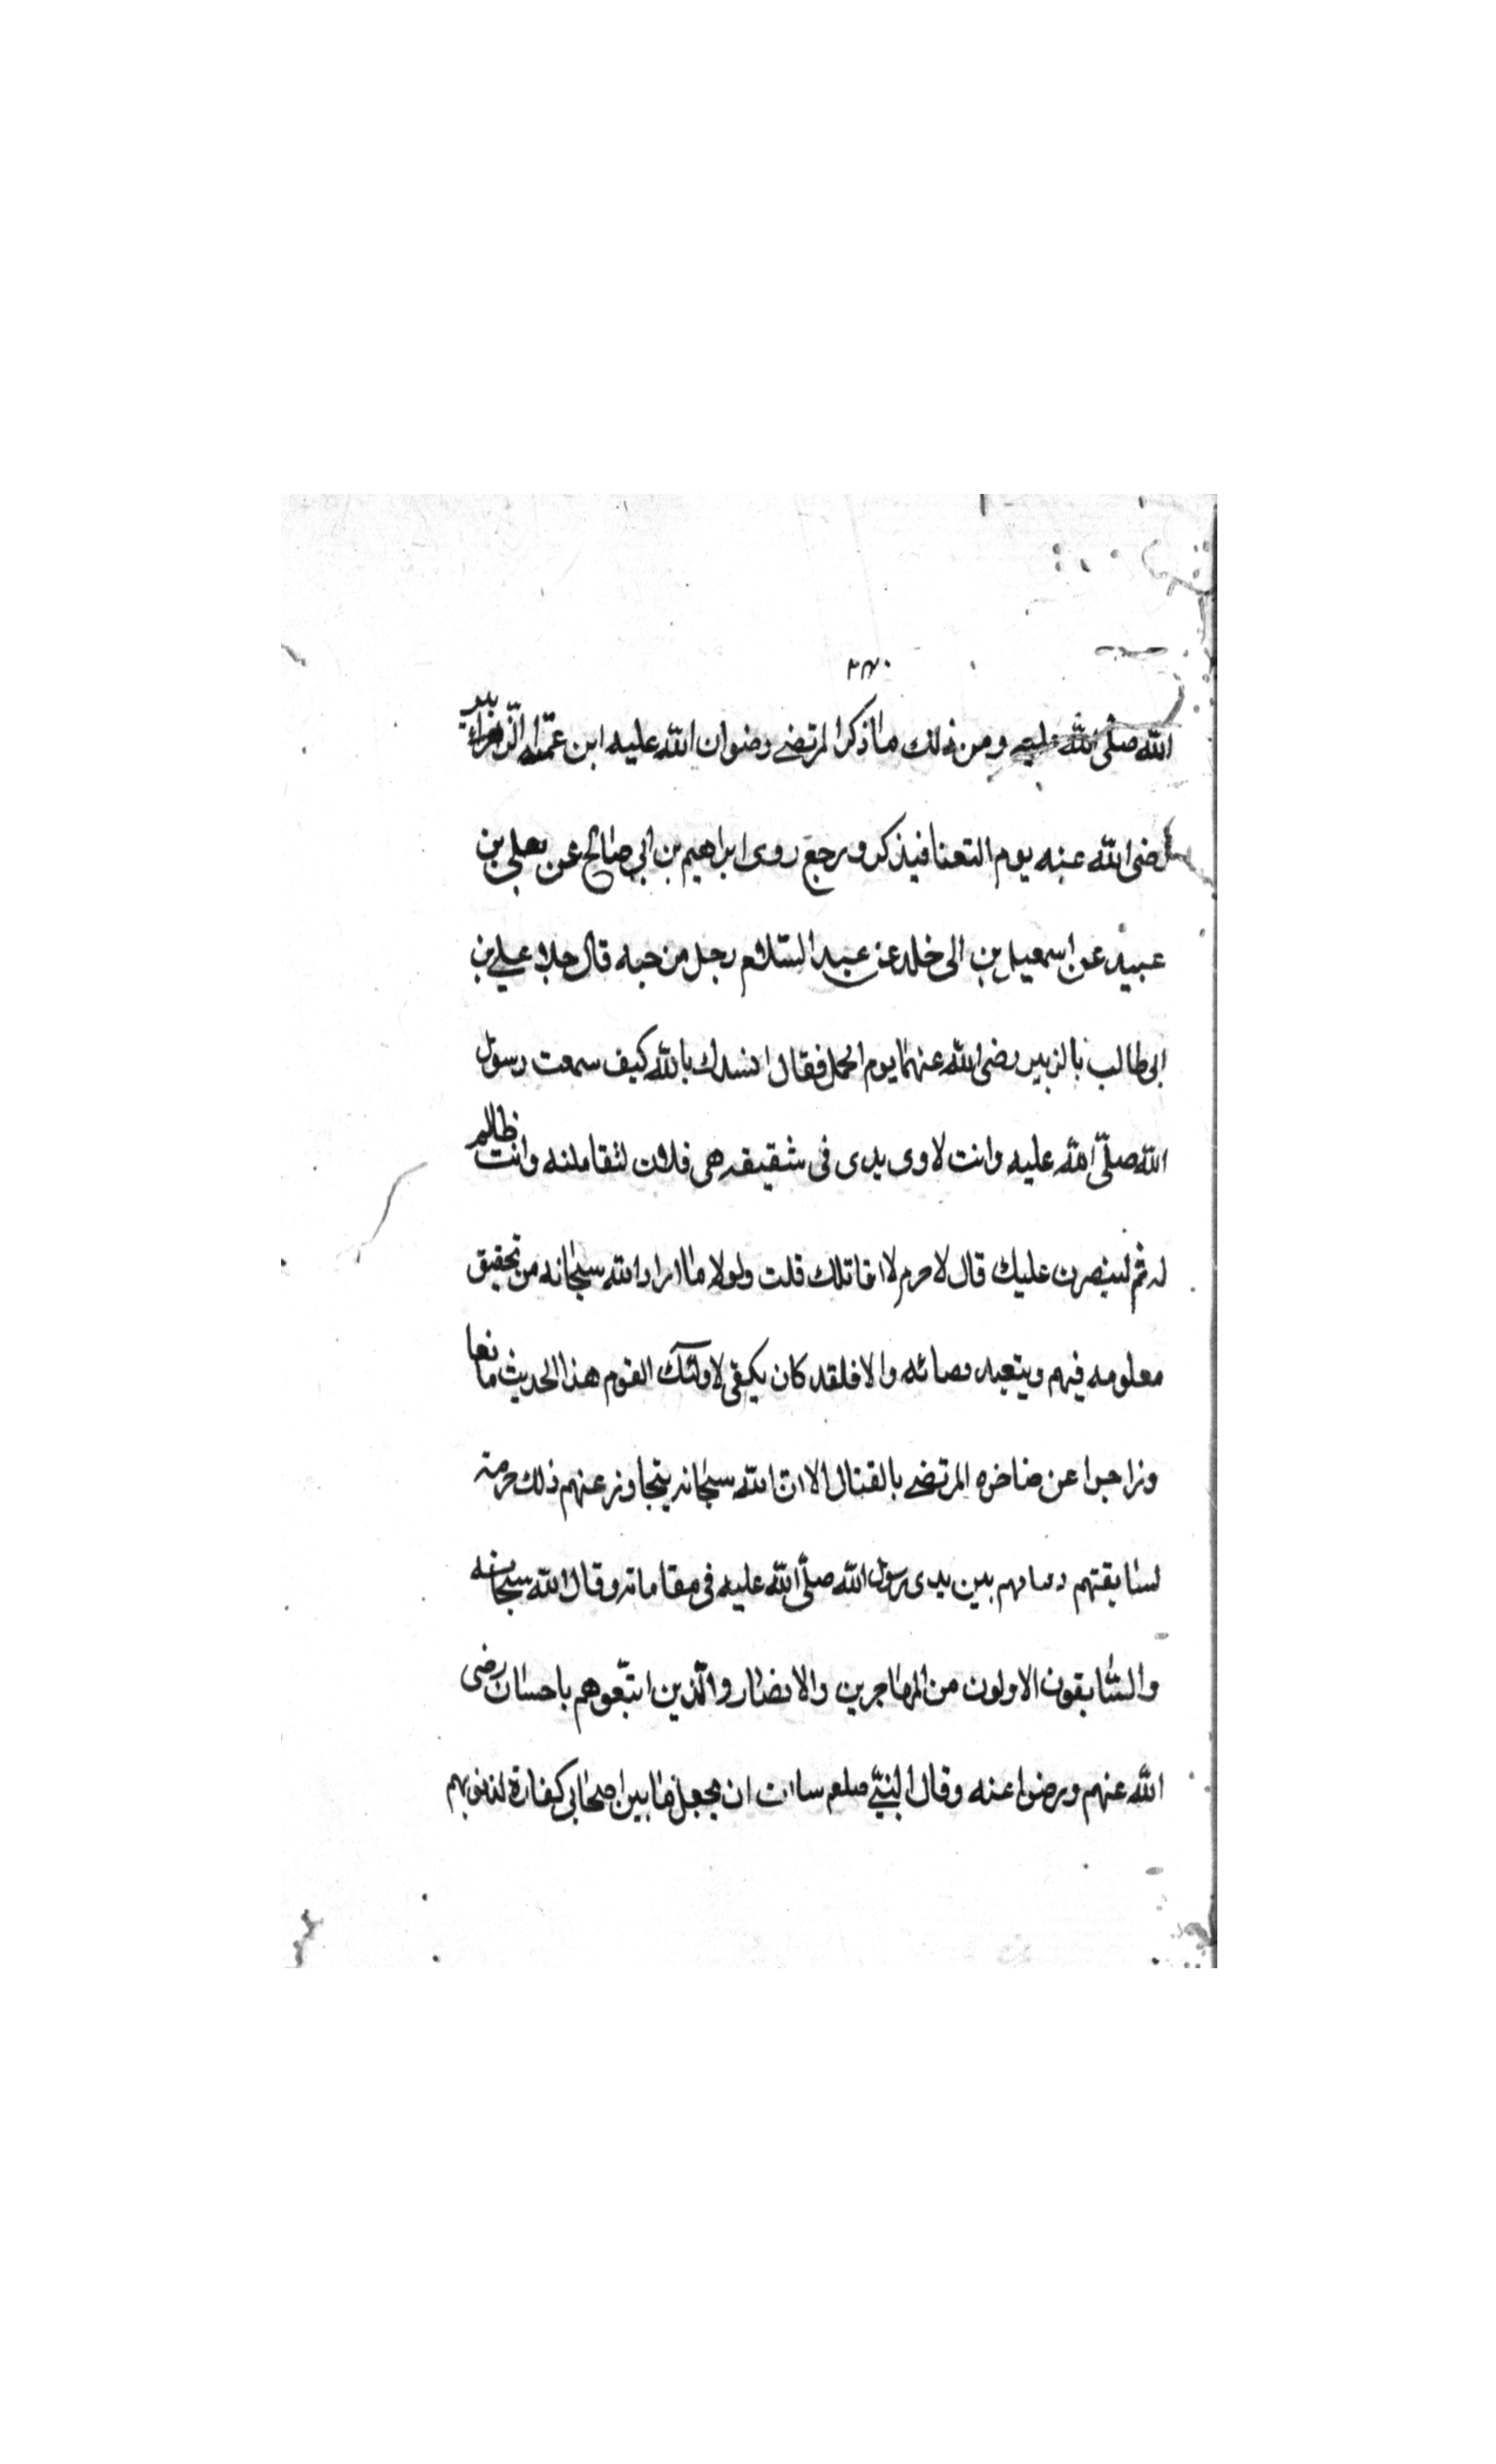 ٣٧٠
الله صلى الله عليه ومن ذلك ما اذكر المرتضى رضوان الله عليه ابن عمته الزبير
رضى الله عنه يوم التعنا فيذكر ورجع روى ابراهيم بن ابى صالح عن يعلى بن
عبيد عن اسمعيل بن ابى خلد عن عبد السلام رجل من حبه قال خلا على بن
ابى طالب بالزبير رضى الله عنهما يوم الجمل فقال انشدك بالله كيف سمعت رسول
الله صلى الله عليه وانت لاوى يدى فى شقيفه هى فلان لتقاتلنه وانت ظالم
له ثم لينصرن عليك قال لا جرم لا اقاتلك قلت ولولا ما اراد الله سبحانه من تحقيق
معلومه فيهم وقضائه والا فلقد كان يكفى لاولئك القوم هذا الحديث مانعا
وزاجرا عن المرتضى بالقتال الا ان الله سبحانه يتجاوز عنهم ذلك حرمته
لسابقتهم بين يدى رسول الله صلى الله عليه فى مقاماته وقال الله سبحانه
والسابقون الاولون من المهاجرين والانصار والذين اتبعوهم باحسان رضى
الله عنهم ورضوا عنه وقال النبى صلعم سالت ان يجعل ما بين اصحابى كفارة لذنوبهم